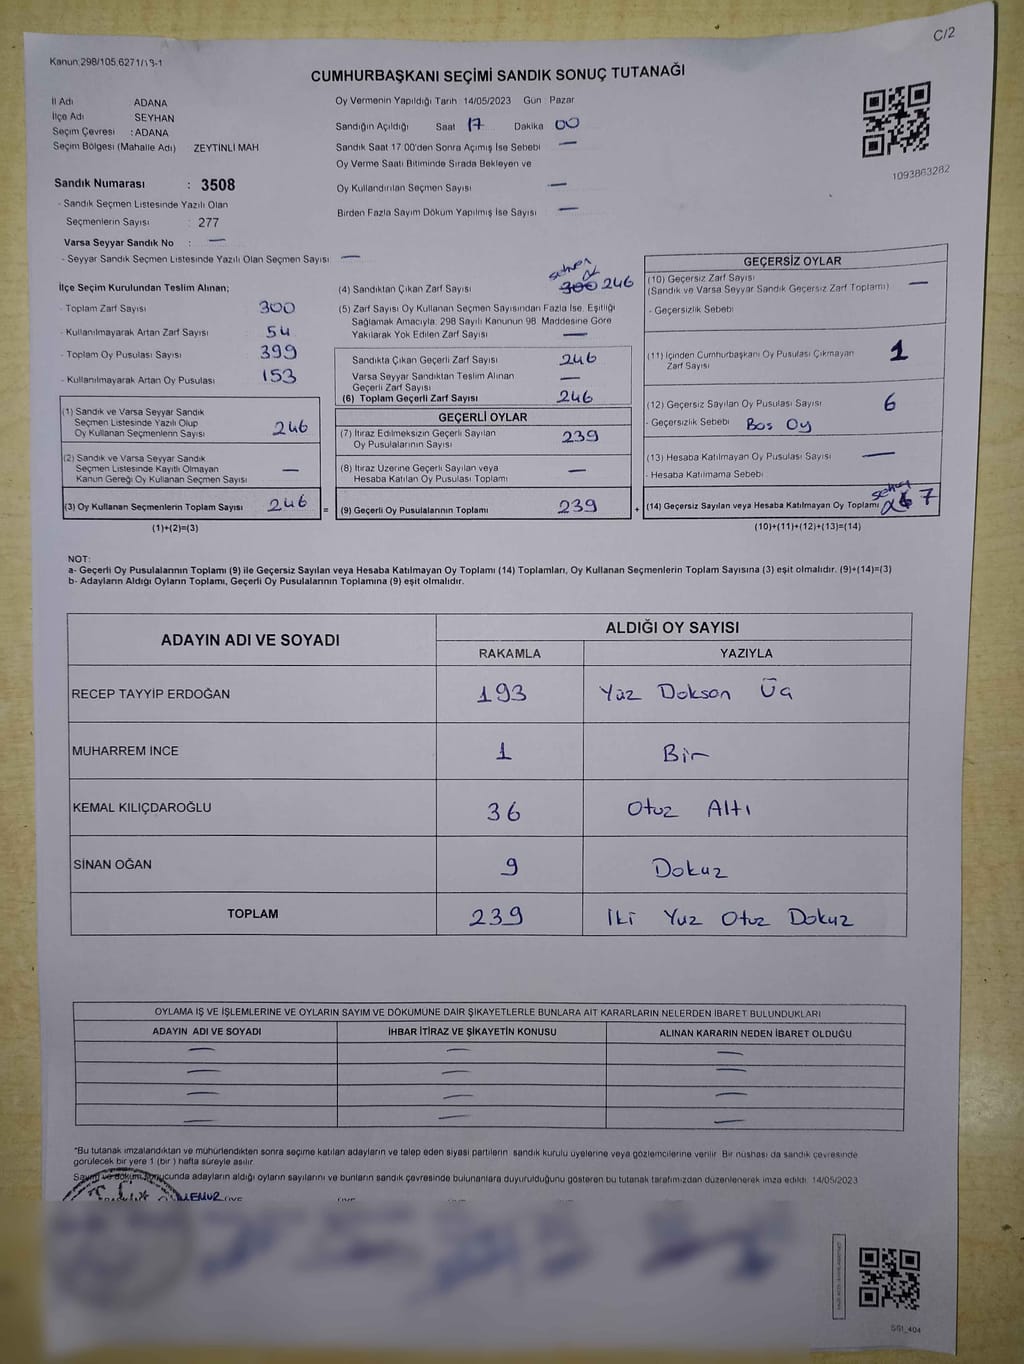 C/2
Kanun.298/105.6271/13-1
CUMHURBAŞKANI SEÇİMİ SANDIK SONUÇ TUTANAĞI
İl Adı ADANA
İlçe Adı SEYHAN
Seçim Çevresi : ADANA
Seçim Bölgesi (Mahalle Adı) ZEYTİNLİ MAH
Sandık Numarası : 3508
- Sandık Seçmen Listesinde Yazılı Olan
Seçmenlerin Sayısı : 277
Varsa Seyyar Sandık No : —
- Seyyar Sandık Seçmen Listesinde Yazılı Olan Seçmen Sayısı —
Oy Vermenin Yapıldığı Tarih 14/05/2023 Gün Pazar
Sandığın Açıldığı Saat 17 Dakika 00
Sandık Saat 17:00'den Sonra Açımış İse Sebebi —
Oy Verme Saati Bitiminde Sırada Bekleyen ve
Oy Kullandırılan Seçmen Sayısı —
Birden Fazla Sayım Döküm Yapılmış İse Sayısı —
1093863282
İlçe Seçim Kurulundan Teslim Alınan;
- Toplam Zarf Sayısı 300
- Kullanılmayarak Artan Zarf Sayısı 54
- Toplam Oy Pusulası Sayısı 399
- Kullanılmayarak Artan Oy Pusulası 153
(1) Sandık ve Varsa Seyyar Sandık
Seçmen Listesinde Yazılı Olup
Oy Kullanan Seçmenlerin Sayısı 246
(2) Sandık ve Varsa Seyyar Sandık
Seçmen Listesinde Kayıtlı Olmayan
Kanun Gereği Oy Kullanan Seçmen Sayısı —
(3) Oy Kullanan Seçmenlerin Toplam Sayısı 246 =
(1)+(2)=(3)
sehven
(4) Sandıktan Çıkan Zarf Sayısı 300 246
(5) Zarf Sayısı Oy Kullanan Seçmen Sayısından Fazla İse, Eşitliği
Sağlamak Amacıyla, 298 Sayılı Kanunun 98. Maddesine Göre
Yakılarak Yok Edilen Zarf Sayısı —
Sandıkta Çıkan Geçerli Zarf Sayısı 246
Varsa Seyyar Sandıktan Teslim Alınan
Geçerli Zarf Sayısı —
(6) Toplam Geçerli Zarf Sayısı 246
GEÇERLİ OYLAR
(7) İtiraz Edilmeksizin Geçerli Sayılan
Oy Pusulalarının Sayısı 239
(8) İtiraz Üzerine Geçerli Sayılan veya
Hesaba Katılan Oy Pusulası Toplamı —
(9) Geçerli Oy Pusulalarının Toplamı 239 +
GEÇERSİZ OYLAR
(10) Geçersiz Zarf Sayısı
(Sandık ve Varsa Seyyar Sandık Geçersiz Zarf Toplamı) —
- Geçersizlik Sebebi
(11) İçinden Cumhurbaşkanı Oy Pusulası Çıkmayan
Zarf Sayısı 1
(12) Geçersiz Sayılan Oy Pusulası Sayısı 6
- Geçersizlik Sebebi Bos Oy
(13) Hesaba Katılmayan Oy Pusulası Sayısı —
- Hesaba Katılmama Sebebi
(14) Geçersiz Sayılan veya Hesaba Katılmayan Oy Toplamı 7
(10)+(11)+(12)+(13)=(14)
NOT:
a- Geçerli Oy Pusulalarının Toplamı (9) ile Geçersiz Sayılan veya Hesaba Katılmayan Oy Toplamı (14) Toplamları, Oy Kullanan Seçmenlerin Toplam Sayısına (3) eşit olmalıdır. (9)+(14)=(3)
b- Adayların Aldığı Oyların Toplamı, Geçerli Oy Pusulalarının Toplamına (9) eşit olmalıdır.
ADAYIN ADI VE SOYADI ALDIĞI OY SAYISI
RAKAMLA YAZIYLA
RECEP TAYYİP ERDOĞAN 193 Yüz Doksan Üç
MUHARREM İNCE 1 Bir
KEMAL KILIÇDAROĞLU 36 Otuz Altı
SİNAN OĞAN 9 Dokuz
TOPLAM 239 İki Yuz Otuz Dokuz
OYLAMA İŞ VE İŞLEMLERİNE VE OYLARIN SAYIM VE DÖKÜMÜNE DAİR ŞİKAYETLERLE BUNLARA AİT KARARLARIN NELERDEN İBARET BULUNDUKLARI
ADAYIN ADI VE SOYADI İHBAR İTİRAZ VE ŞİKAYETİN KONUSU ALINAN KARARIN NEDEN İBARET OLDUĞU
— — —
— — —
— — —
— — —
*Bu tutanak imzalandıktan ve mühürlendikten sonra seçime katılan adayların ve talep eden siyasi partilerin sandık kurulu üyelerine veya gözlemcilerine verilir. Bir nüshası da sandık çevresinde
görülecek bir yere 1 (bir) hafta süreyle asılır.
Sayım ve döküm sonucunda adayların aldığı oyların sayılarını ve bunların sandık çevresinde bulunanlara duyurulduğunu gösteren bu tutanak tarafımızdan düzenlenerek imza edildi. 14/05/2023
MEMUR
SS1_404